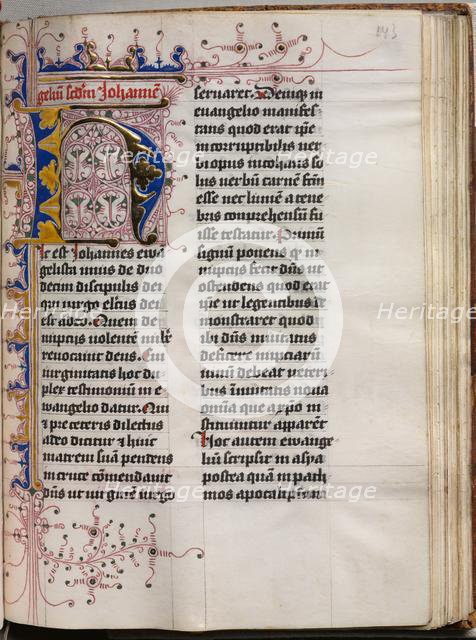 143
geliū scdm Johannē
Hic est Johannes ewa
gelista unus de duo
decim discipulis dei
qui virgo electus dei
est a deo. Quem de
nupciis volentē nubē
revocavit deus. Cui
virginitatis hoc du
plex testimoniū in e
wangelio datur. Qui
et pre ceteris dilectus
a deo dicitur et huic
matrem suā pendens
in cruce cōmendavit
dn̄s ut virginē virgo
servaret. Deniq; in
ewangelio manifes
tans quod erat ip̄e
incorruptibilis ver
bi opus inchoans so
lus verbū carnē fcm̄
esse nec lumē a tene
bris comprehensū fu
isse testatur. Primū
signum ponens qd̄ in
nupciis fecit dn̄s ut
ostendens quod erat
ip̄e ut legentibus de
monstraret quod
ubi dn̄s invitatus
deficere nupciarū
vinū debeat veteri
bus īmutatis nova
om̄ia que a xp̄o in
stituuntur appareāt
Hoc autem ewange
liū scripsit in asya
postea quā in path
mos apocalipsim
Heritage
Heritage
Heritage
Heritage
Heritage
Heritage